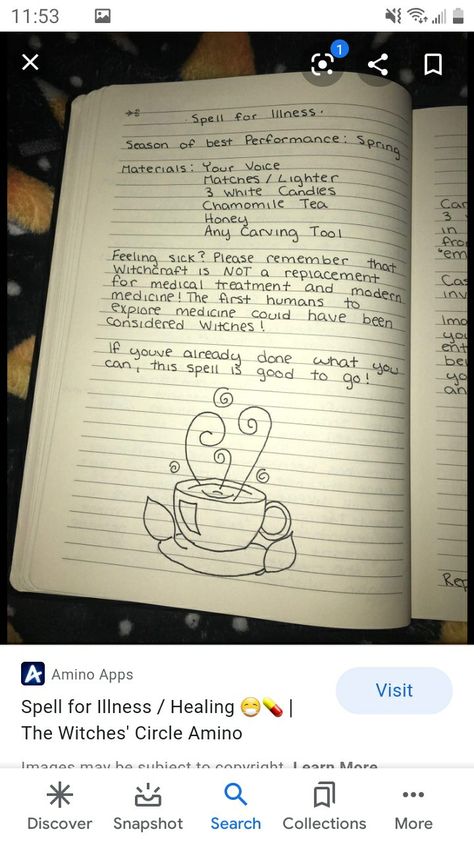 11:53
1
Spell for Illness.
Season of best Performance: Spring
Materials: Your Voice
Matches / Lighter
3 White Candles
Chamomile Tea
Honey
Any Carving Tool
Feeling sick? Please remember that
Witchcraft is NOT a replacement
for medical treatment and modern
medicine! The first humans to
explore medicine could have been
considered Witches!
If youve already done what you
can, this spell is good to go!
Car
3
in
fro
"em
Cas
inv
Ima
you
ent
be
yo
an
Rep
Amino Apps
Visit
Spell for Illness / Healing 😷💊 |
The Witches' Circle Amino
Images may be subject to copyright. Learn More
Discover
Snapshot
Search
Collections
More